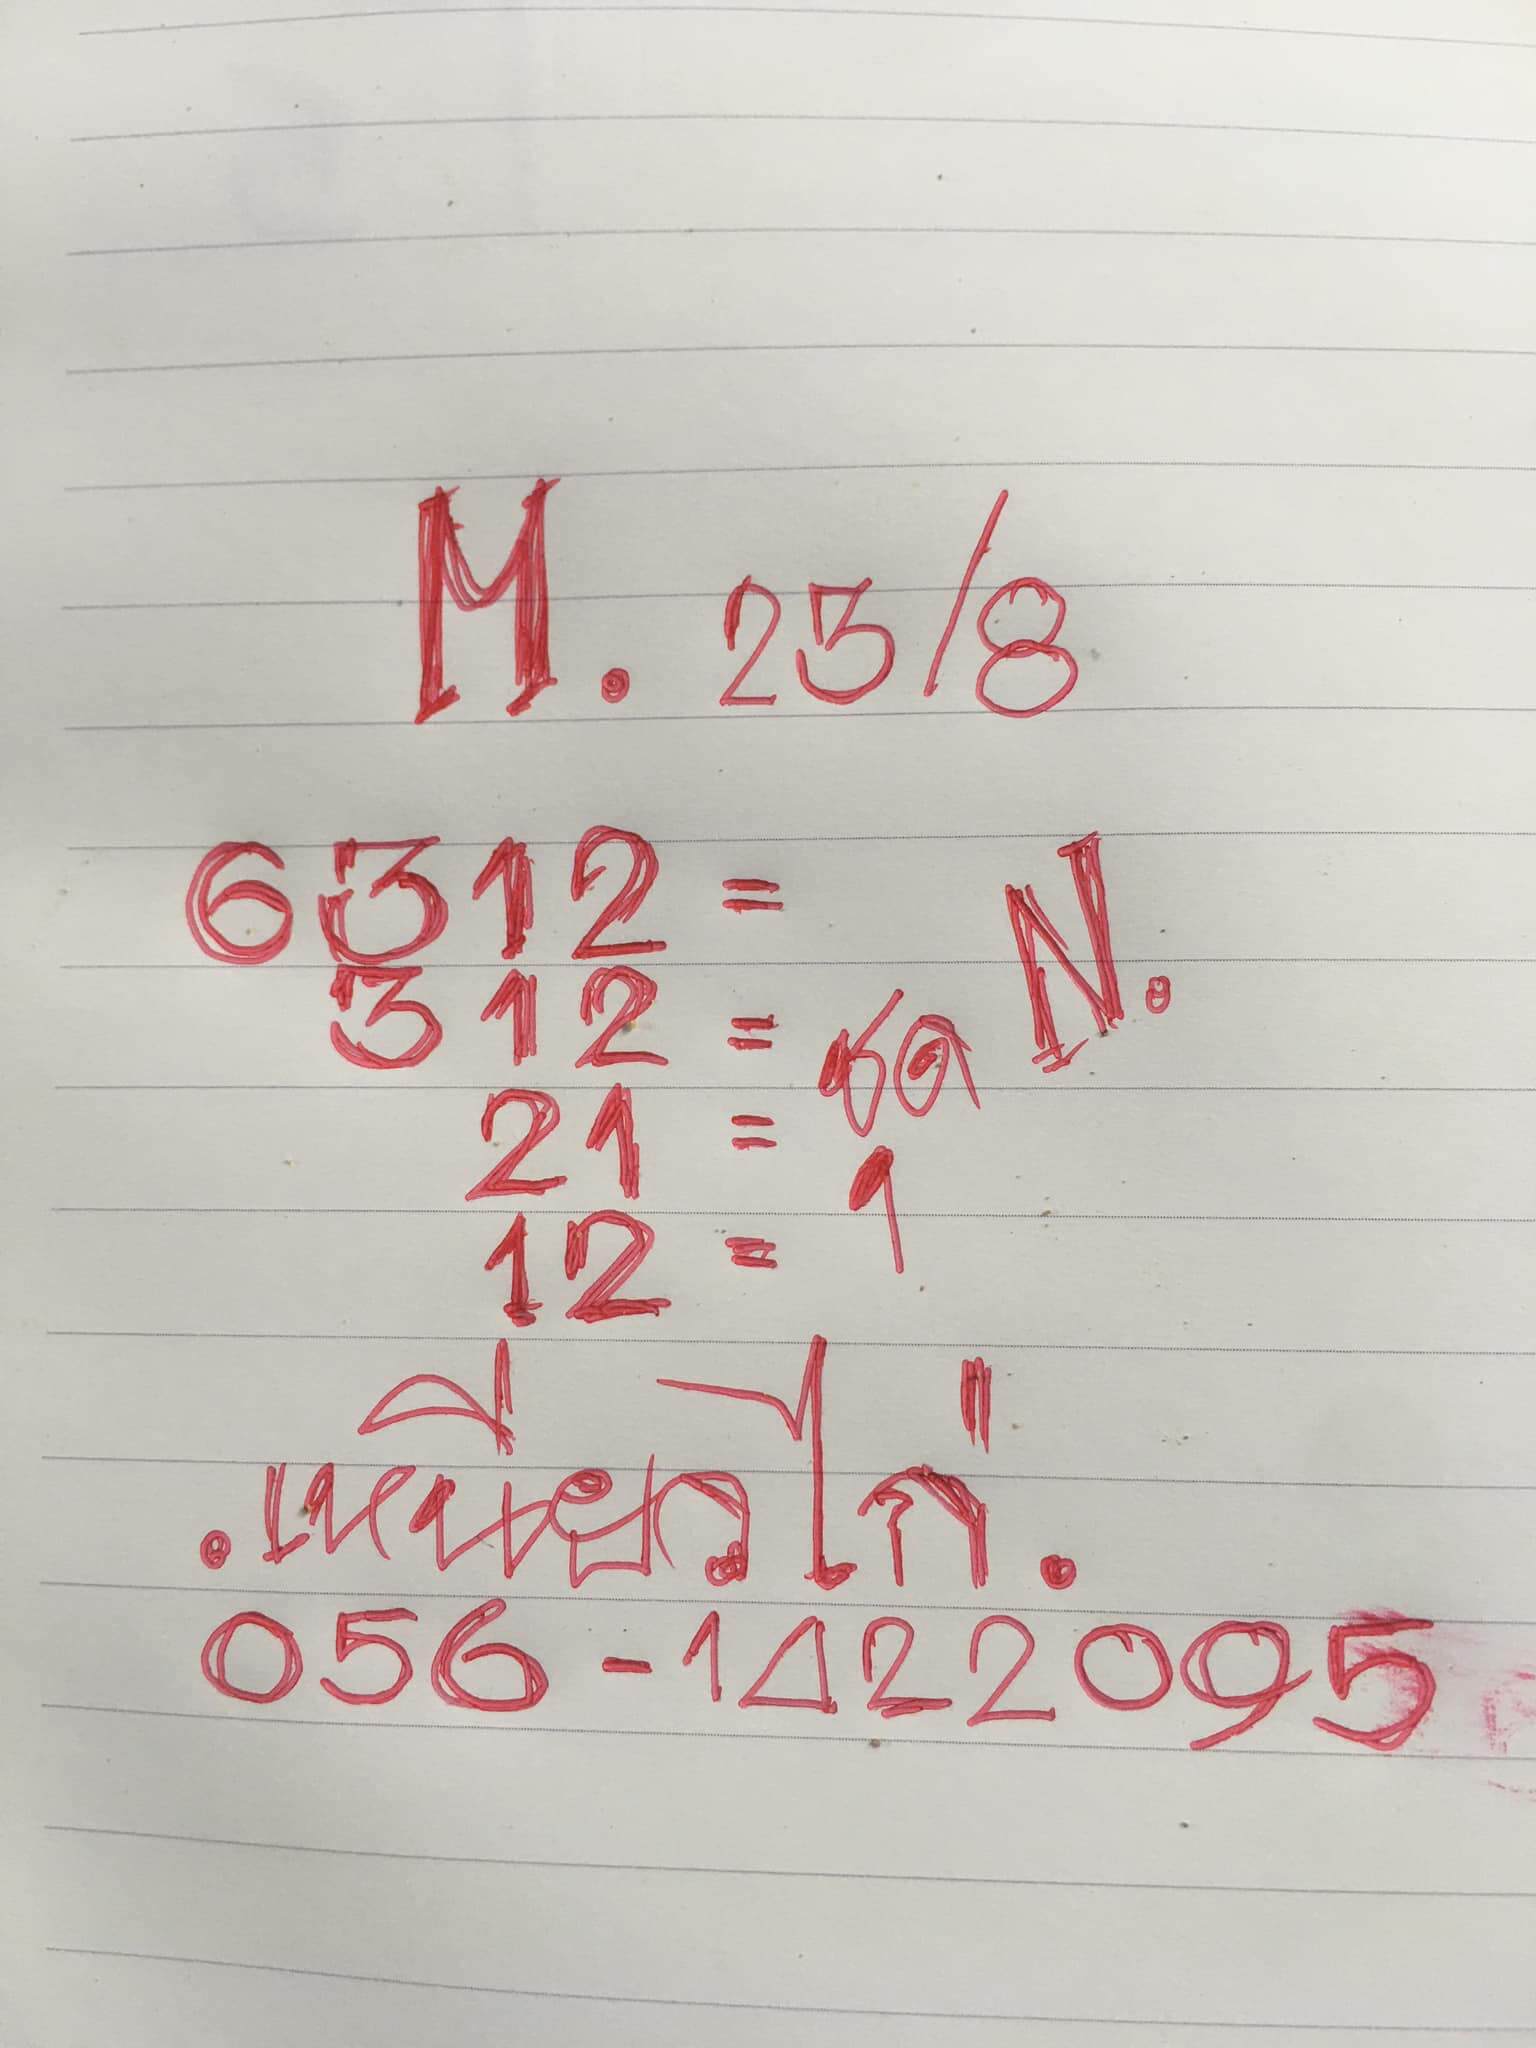 M. 25/8
6312 =
312 = ชุด N.
21 =
12 = 1
.เหนียวไก่.
056-1422095